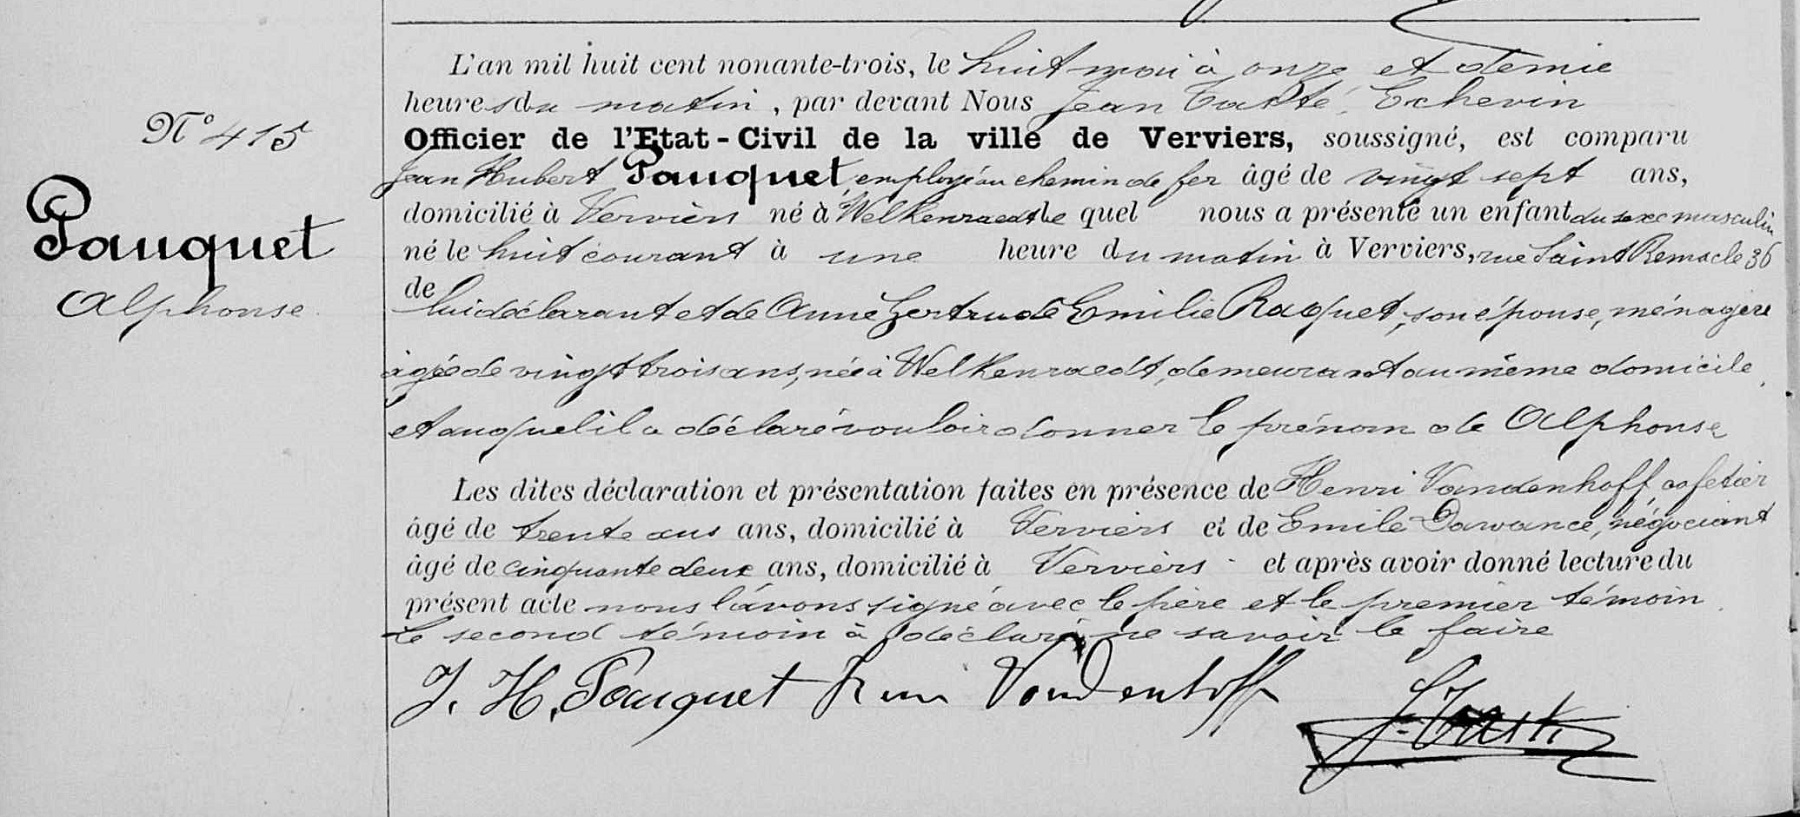 N° 415
Pauquet
Alphonse
L'an mil huit cent nonante-trois, le huit mai à onze et demie
heures du matin, par devant Nous Jean Tasté, Echevin
Officier de l'Etat-Civil de la ville de Verviers, soussigné, est comparu
Jean Hubert Pauquet, employé au chemin de fer âgé de vingt sept ans,
domicilié à Verviers né à Welkenraedt le quel nous a présenté un enfant du sexe masculin
né le huit courant à une heure du matin à Verviers, rue Saint Remacle 36
de
lui déclarant et de Anne Gertrude Emilie Raquet, son épouse, ménagère
âgée de vingt trois ans, née à Welkenraedt, demeurant au même domicile,
et auquel il a déclaré vouloir donner le prénom de Alphonse
Les dites déclaration et présentation faites en présence de Henri Vandenhoff, cafetier
âgé de trente ans ans, domicilié à Verviers et de Emile Dawance, négociant
âgé de cinquante deux ans, domicilié à Verviers et après avoir donné lecture du
présent acte nous l'avons signé avec le père et le premier témoin.
le second témoin à déclaré ne savoir le faire
J. H. Pauquet Vandenhoff